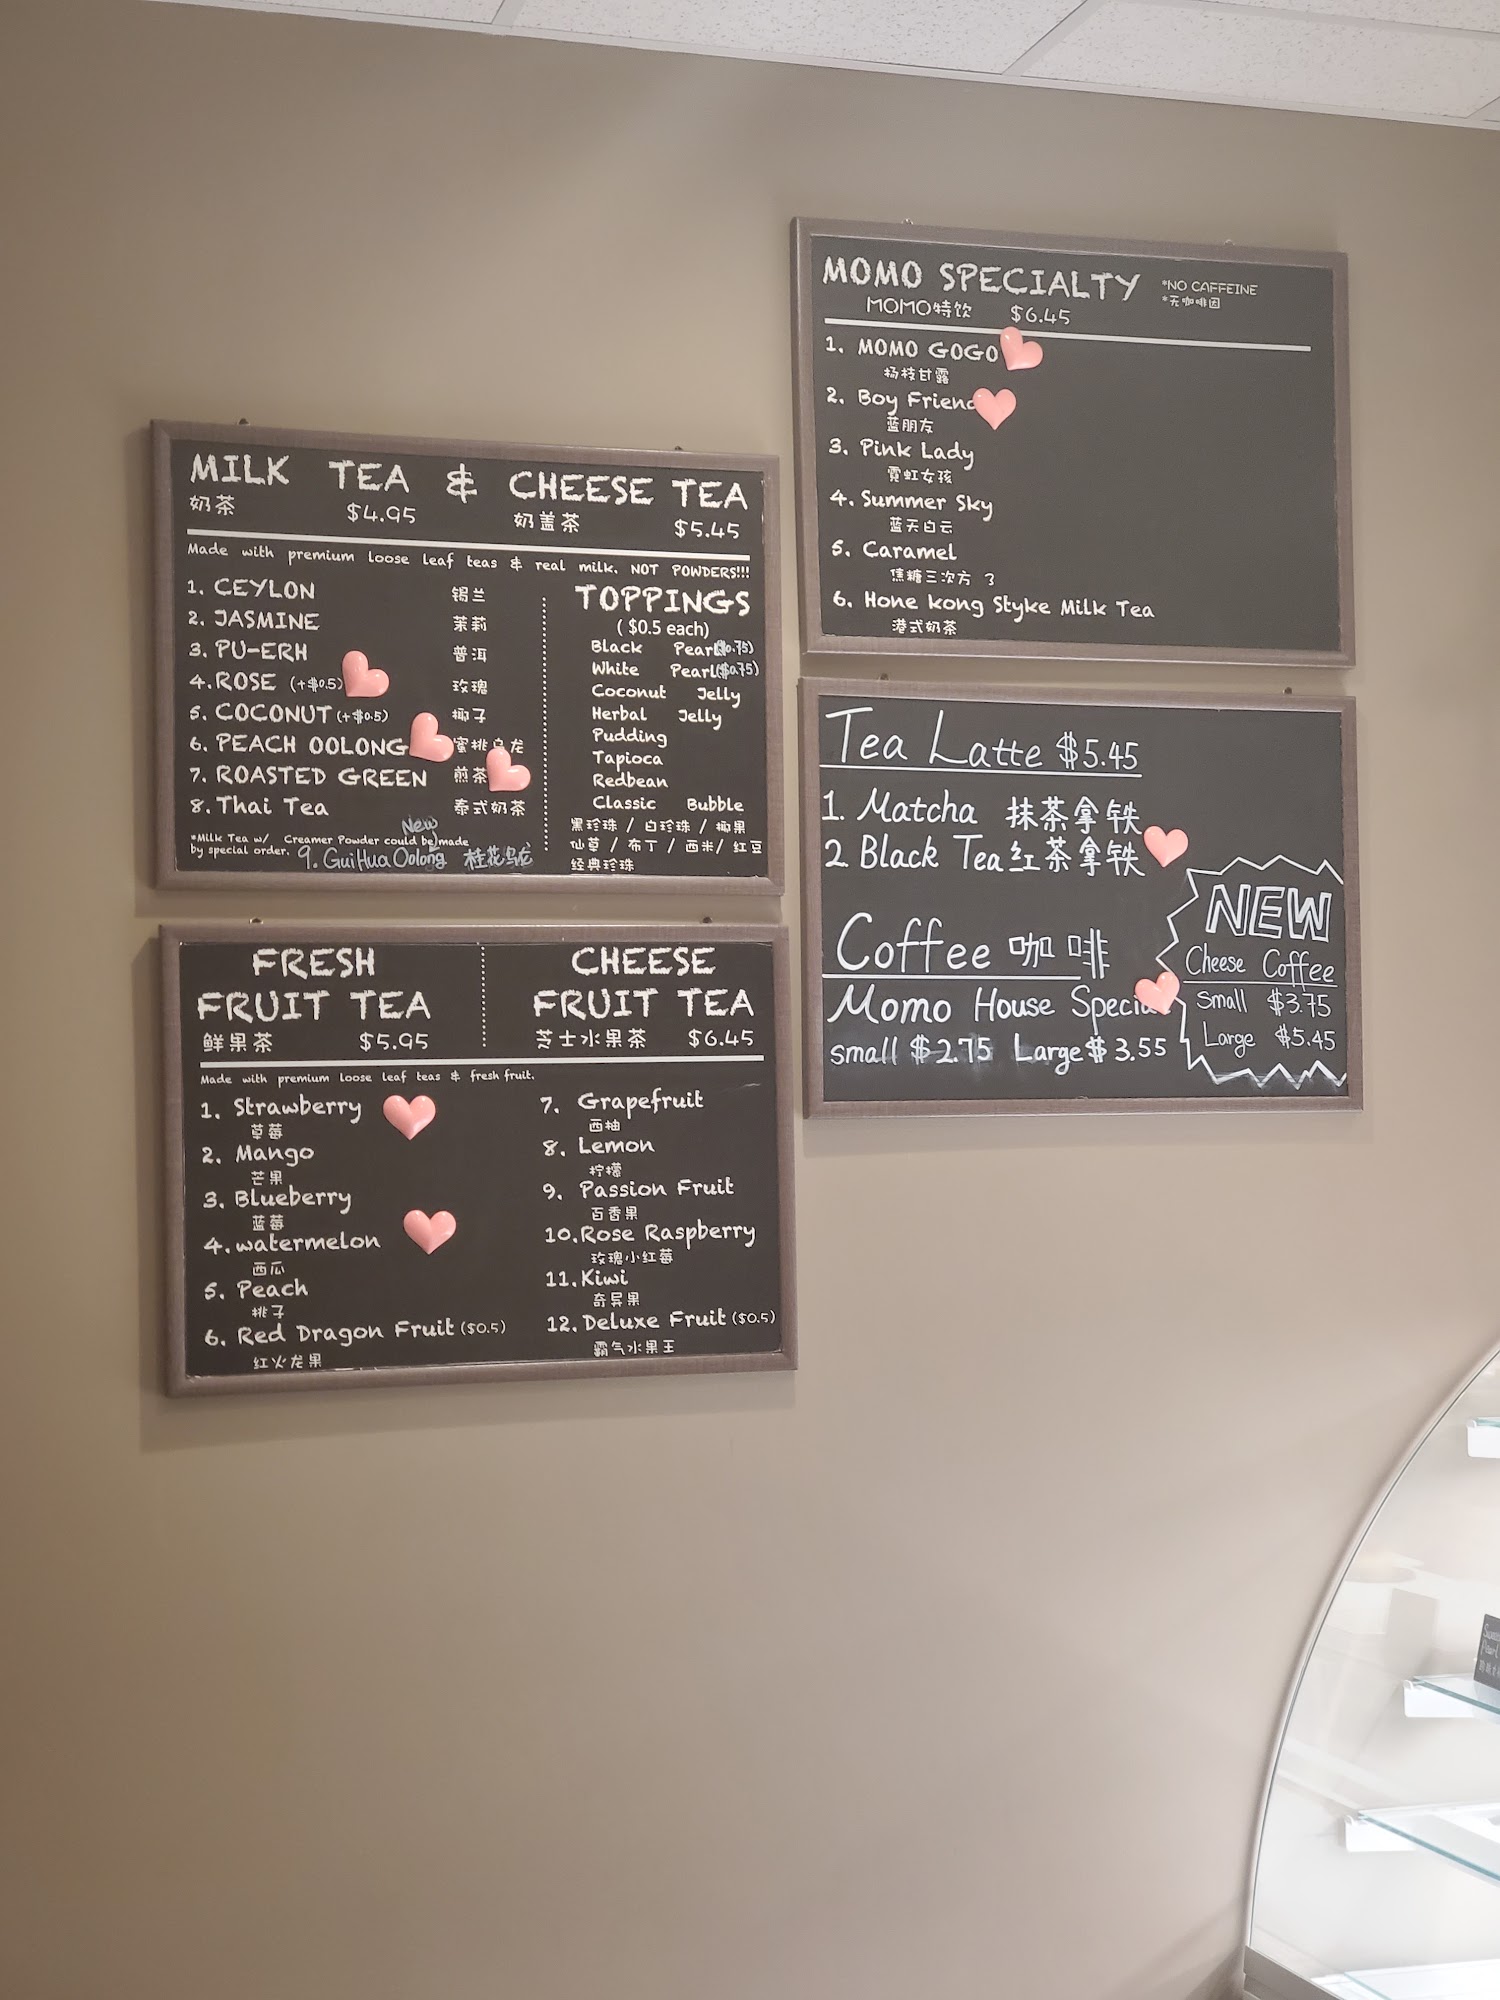 MILK TEA & CHEESE TEA
奶茶 $4.95 奶盖茶 $5.45
Made with premium loose leaf teas & real milk. NOT POWDERS!!!
1. CEYLON 锡兰
2. JASMINE 茉莉
3. PU-ERH 普洱
4. ROSE (+$0.5) 玫瑰
5. COCONUT (+$0.5) 椰子
6. PEACH OOLONG 蜜桃乌龙
7. ROASTED GREEN 煎茶
8. Thai Tea 泰式奶茶
*Milk Tea w/ Creamer Powder could be made
by special order.
New
9. GuiHua Oolong 桂花乌龙
TOPPINGS
( $0.5 each)
Black Pearl($0.75)
White Pearl($0.75)
Coconut Jelly
Herbal Jelly
Pudding
Tapioca
Redbean
Classic Bubble
黑珍珠 / 白珍珠 / 椰果
仙草 / 布丁 / 西米/ 红豆
经典珍珠
MOMO SPECIALTY *NO CAFFEINE
MOMO特饮 $6.45 *无咖啡因
1. MOMO GOGO
杨枝甘露
2. Boy Friend
蓝朋友
3. Pink Lady
霓虹女孩
4. Summer Sky
蓝天白云
5. Caramel
焦糖三次方 3
6. Hone kong Styke Milk Tea
港式奶茶
FRESH
FRUIT TEA
鲜果茶 $5.95
CHEESE
FRUIT TEA
芝士水果茶 $6.45
Made with premium loose leaf teas & fresh fruit.
1. Strawberry
草莓
2. Mango
芒果
3. Blueberry
蓝莓
4. watermelon
西瓜
5. Peach
桃子
6. Red Dragon Fruit ($0.5)
红火龙果
7. Grapefruit
西柚
8. Lemon
柠檬
9. Passion Fruit
百香果
10. Rose Raspberry
玫瑰小红莓
11. Kiwi
奇异果
12. Deluxe Fruit ($0.5)
霸气水果王
Tea Latte $5.45
1. Matcha 抹茶拿铁
2. Black Tea 红茶拿铁
Coffee 咖啡
Momo House Special
small $2.75 Large $3.55
NEW
Cheese Coffee
Small $3.75
Large $5.45